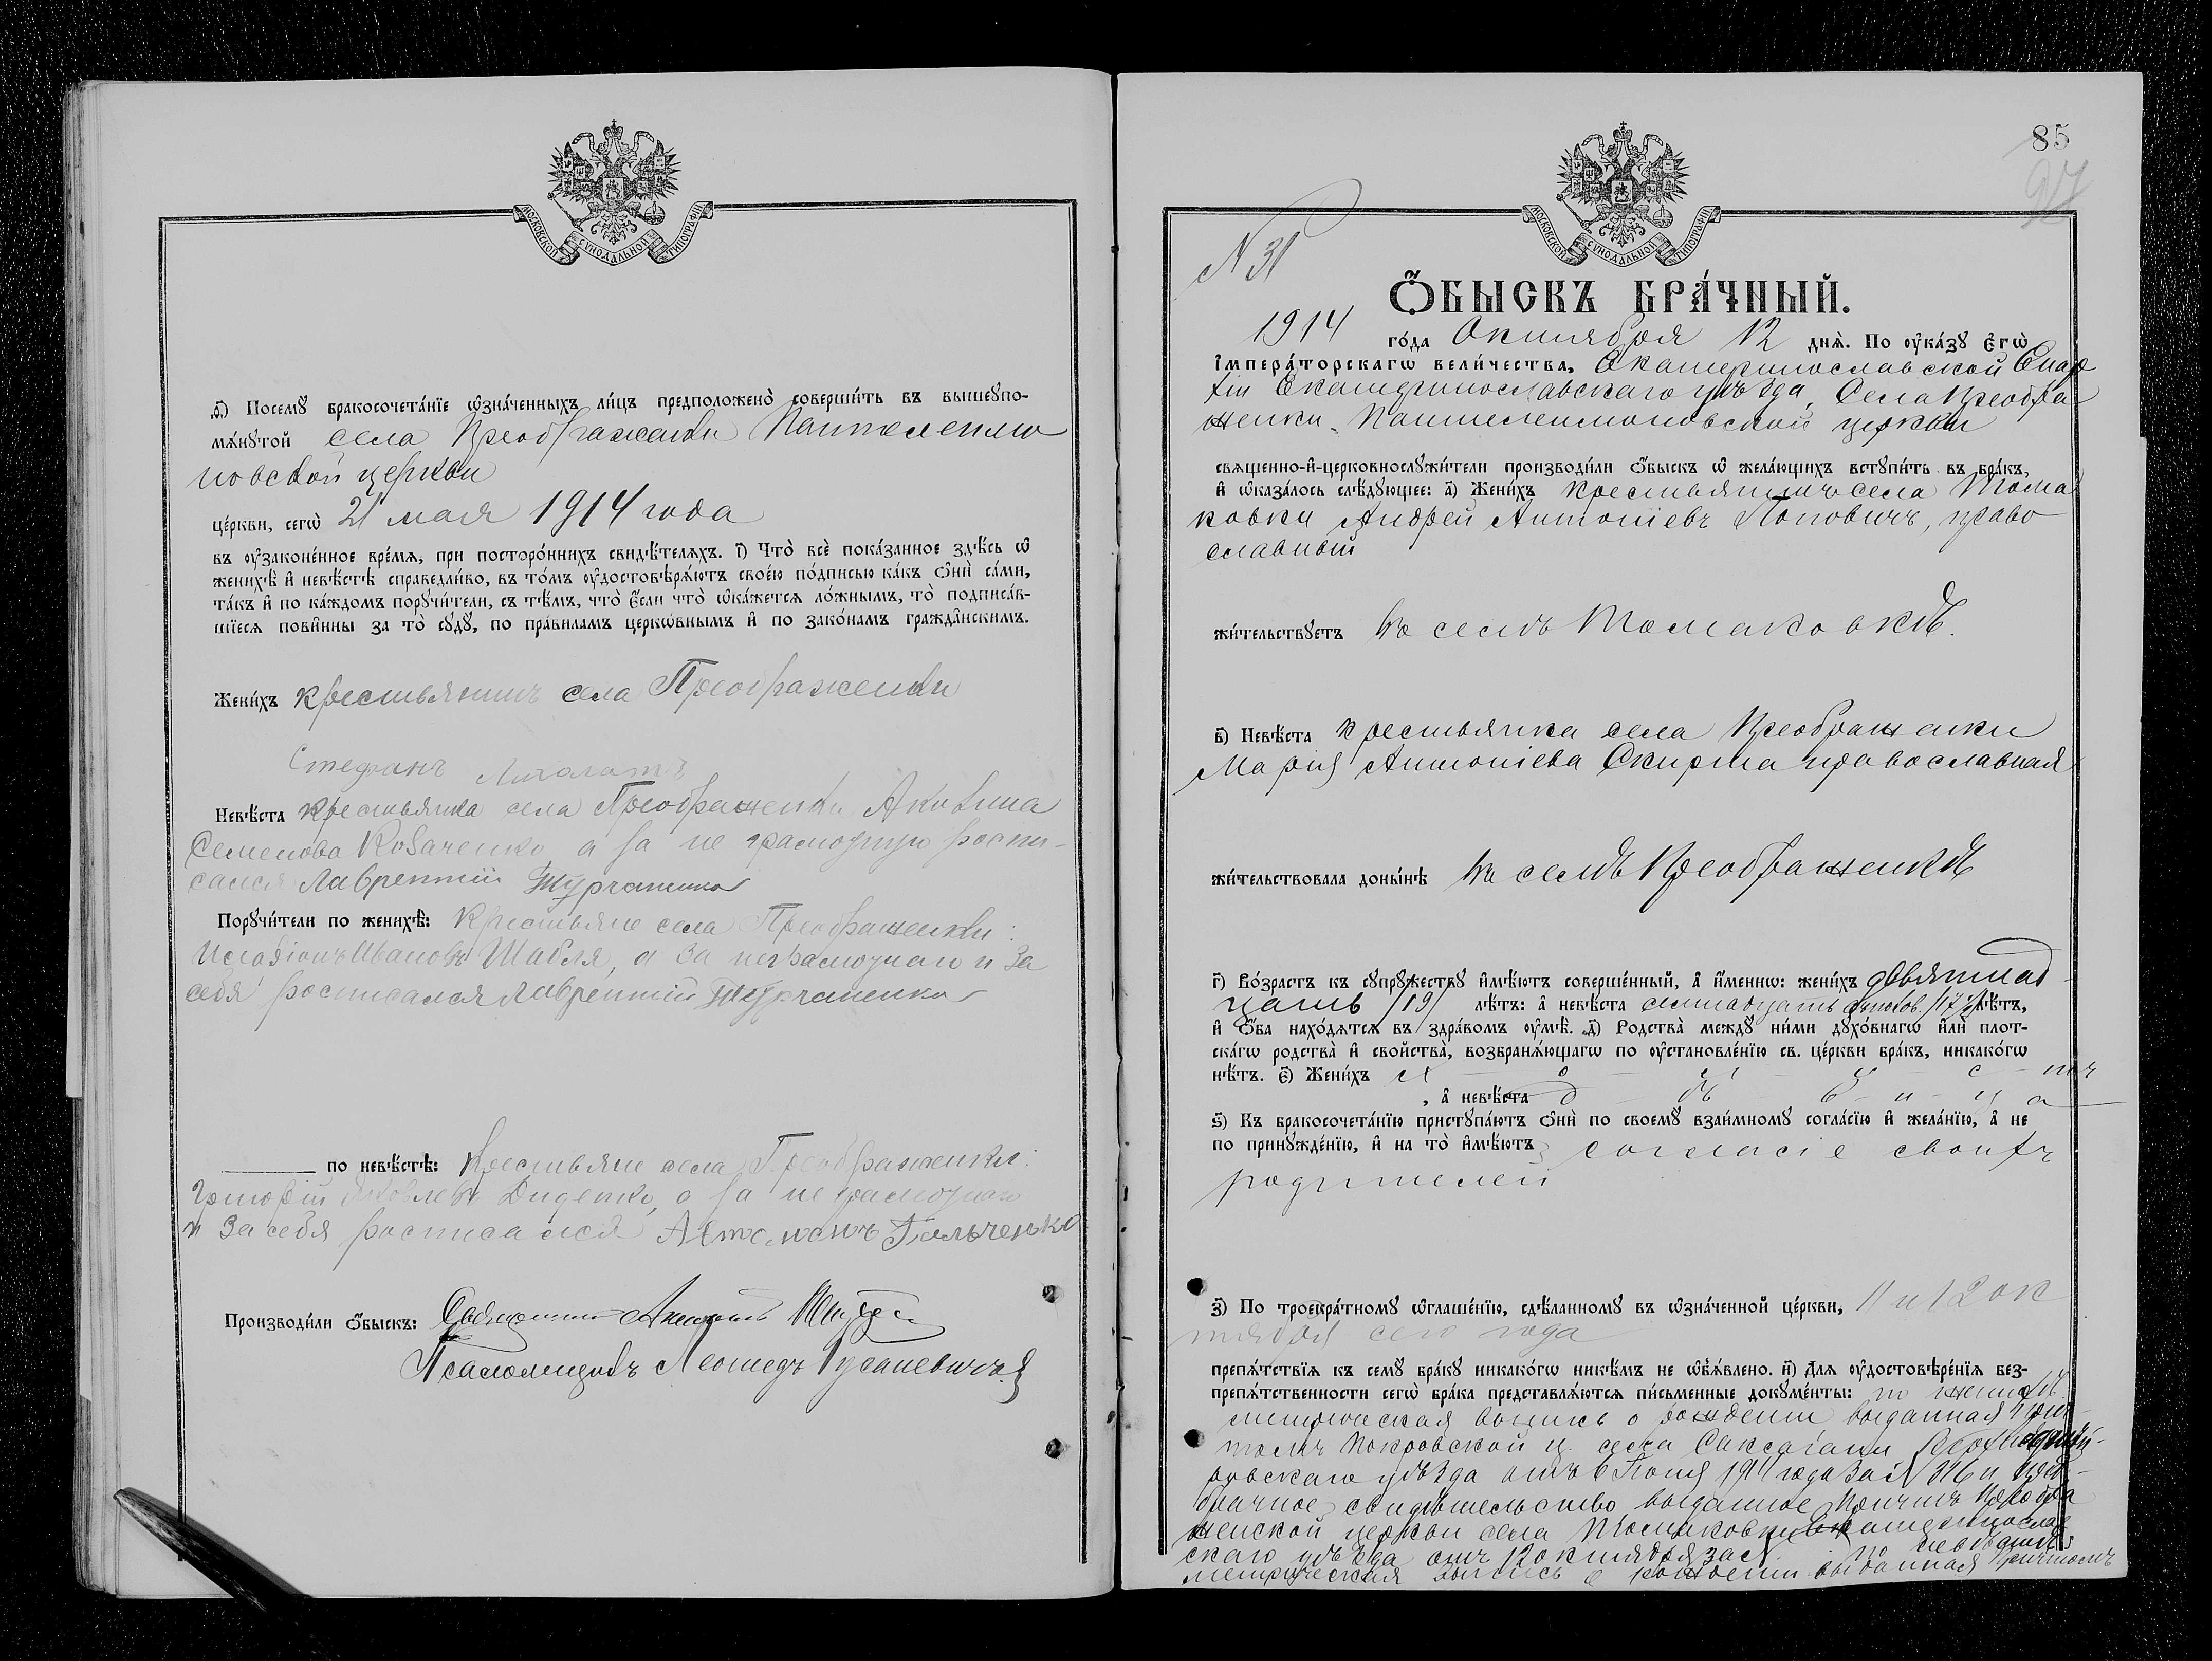 МОСКОВСКОЙ СѴНОДАЛЬНОЙ ТИПОГРАФІИ
ѳ҃) Посемꙋ бракосочета́нїе ѡзна́ченныхъ ли́цъ предположено̀ соверши́ть въ вышеꙋпо-
мѧ́нꙋтой села Преображенки Пантелеимо
новской церкви
це́ркви, сегѡ̀ 21 мая 1914 года
въ ᲂу҆законе́нное вре́мѧ, при посторо́ннихъ свидѣ́телѧхъ. і҃) Что̀ всѐ пока́занное здѣ́сь ѡ
женихѣ̀ и҆ невѣ́стѣ справедли́во, въ то́мъ ᲂу҆достовѣрѧ́ютъ свое́ю по́дписью ка́къ ѻ҆нѝ са́ми,
та́къ и҆ по ка́ждомъ порꙋчи́тели, съ тѣ́мъ, что̀ є҆́сли что̀ ѡ҆ка́жетсѧ ло́жнымъ, то̀ подписа́в-
шїесѧ пови́нны за то̀ сꙋдꙋ̀, по пра́виламъ церко́внымъ и҆ по зако́намъ гражда́нскимъ.
Жени́хъ крестьянинъ села Преображенки
Стефанъ
Невѣ́ста крестьянка села Преображенки Акилина
Семенова Козаченко, а за не грамотную роспи-
сался Лаврентій Журчаненко
Порꙋчи́тели по женихѣ̀: Крестьяне села Преображенки:
Ивановъ Шабля, а за неграмотнаго и за
себя росписался Лаврентій Журчаненко
по невѣ́стѣ: Крестьяне села Преображенки:
Григорій Яковлевъ Диденко, а за неграмотнаго
и за себя росписался Автономъ Гальченко
Производи́ли ѻ҆́быскъ: Священникъ
Псаломщикъ Леонидъ Русаневичъ
85
97
МОСКОВСКОЙ СѴНОДАЛЬНОЙ ТИПОГРАФІИ
N 31
Ѻ҆́БЫСКЪ БРА́ЧНЫЙ.
1914 го́да Октября 12 днѧ̀. По ᲂу҆ка́зꙋ Є҆гѡ̀
Імпера́торскагѡ вели́чества, Екатеринославской Епар
хіи Екатеринославскаго уѣзда, Села Преобра
женки, Пантелеимоновской церкви
свѧще́нно-и҆-церковнослꙋжи́тели производи́ли ѻ҆́быскъ ѡ жела́ющихъ встꙋпи́ть въ бра́къ,
и҆ ѡ҆каза́лось слѣ́дꙋющее: а҃) Жени́хъ крестьянинъ села Тома
ковки Андрей Антоніевъ Поповичъ, право
славный
жи́тельствꙋетъ въ селѣ Томаковкѣ.
в҃) Невѣ́ста крестьянка села Преображенки
Марія Антоніева Скирта православная
жи́тельствовала доны́нѣ въ селѣ Преображенкѣ
г҃) Во́зрастъ къ сꙋпрꙋ́жествꙋ и҆мѣ́ютъ соверше́нный, а҆ и҆́меннѡ: жени́хъ девятнад
цать /19/ лѣ́тъ: а҆ невѣ́ста семнадцать /17 лѣ́тъ,
и҆ ѻ҆́ба нахо́дѧтсѧ въ здра́вомъ ᲂу҆мѣ̀. д҃) Родства̀ междꙋ ни́ми дꙋхо́внагѡ и҆лѝ плот-
ска́гѡ родства̀ и҆ сво́йства, возбранѧ́ющагѡ по ᲂу҆становле́нїю св. це́ркви бра́къ, никако́гѡ
нѣ́тъ. є҃) Жени́хъ х о л о с тъ
, а҆ невѣ́ста д ѣ в и ц а
ѕ҃) Къ бракосочета́нїю пристꙋпа́ютъ ѻ҆нѝ по своемꙋ̀ взаи́мномꙋ согла́сїю и҆ жела́нїю, а҆ не
по принꙋжде́нїю, и҆ на то̀ и҆мѣ́ютъ согласіе своихъ
родителей
з҃) По троекра́тномꙋ ѡ҆глаше́нїю, сдѣ́ланномꙋ въ ѡ҆зна́ченной це́ркви, 11 и 12 ок
тября сего года
препѧ́тствїѧ къ семꙋ̀ бра́кꙋ никако́гѡ никѣ́мъ не ѡ҆б̾ѧ́влено. и҃) Для ᲂу҆достовѣре́нїѧ без-
препѧ́тственности сегѡ̀ бра́ка представлѧ́ютсѧ пи́сьменные докꙋме́нты: по женихѣ
метрическая выпись о рожденіи выданная прич
томъ Покровской ц. села Саксагани Верхнеднѣп-
ровскаго уѣзда отъ 6 Іюня 1911 года за N 216 и пред-
брачное свидѣтельство выданное причтомъ Преобра
женской церкви села Томаковки Екатеринослав
скаго уѣзда отъ 12 октября за N по невѣстѣ
метрическая выпись о рожденіи выданная причтомъ